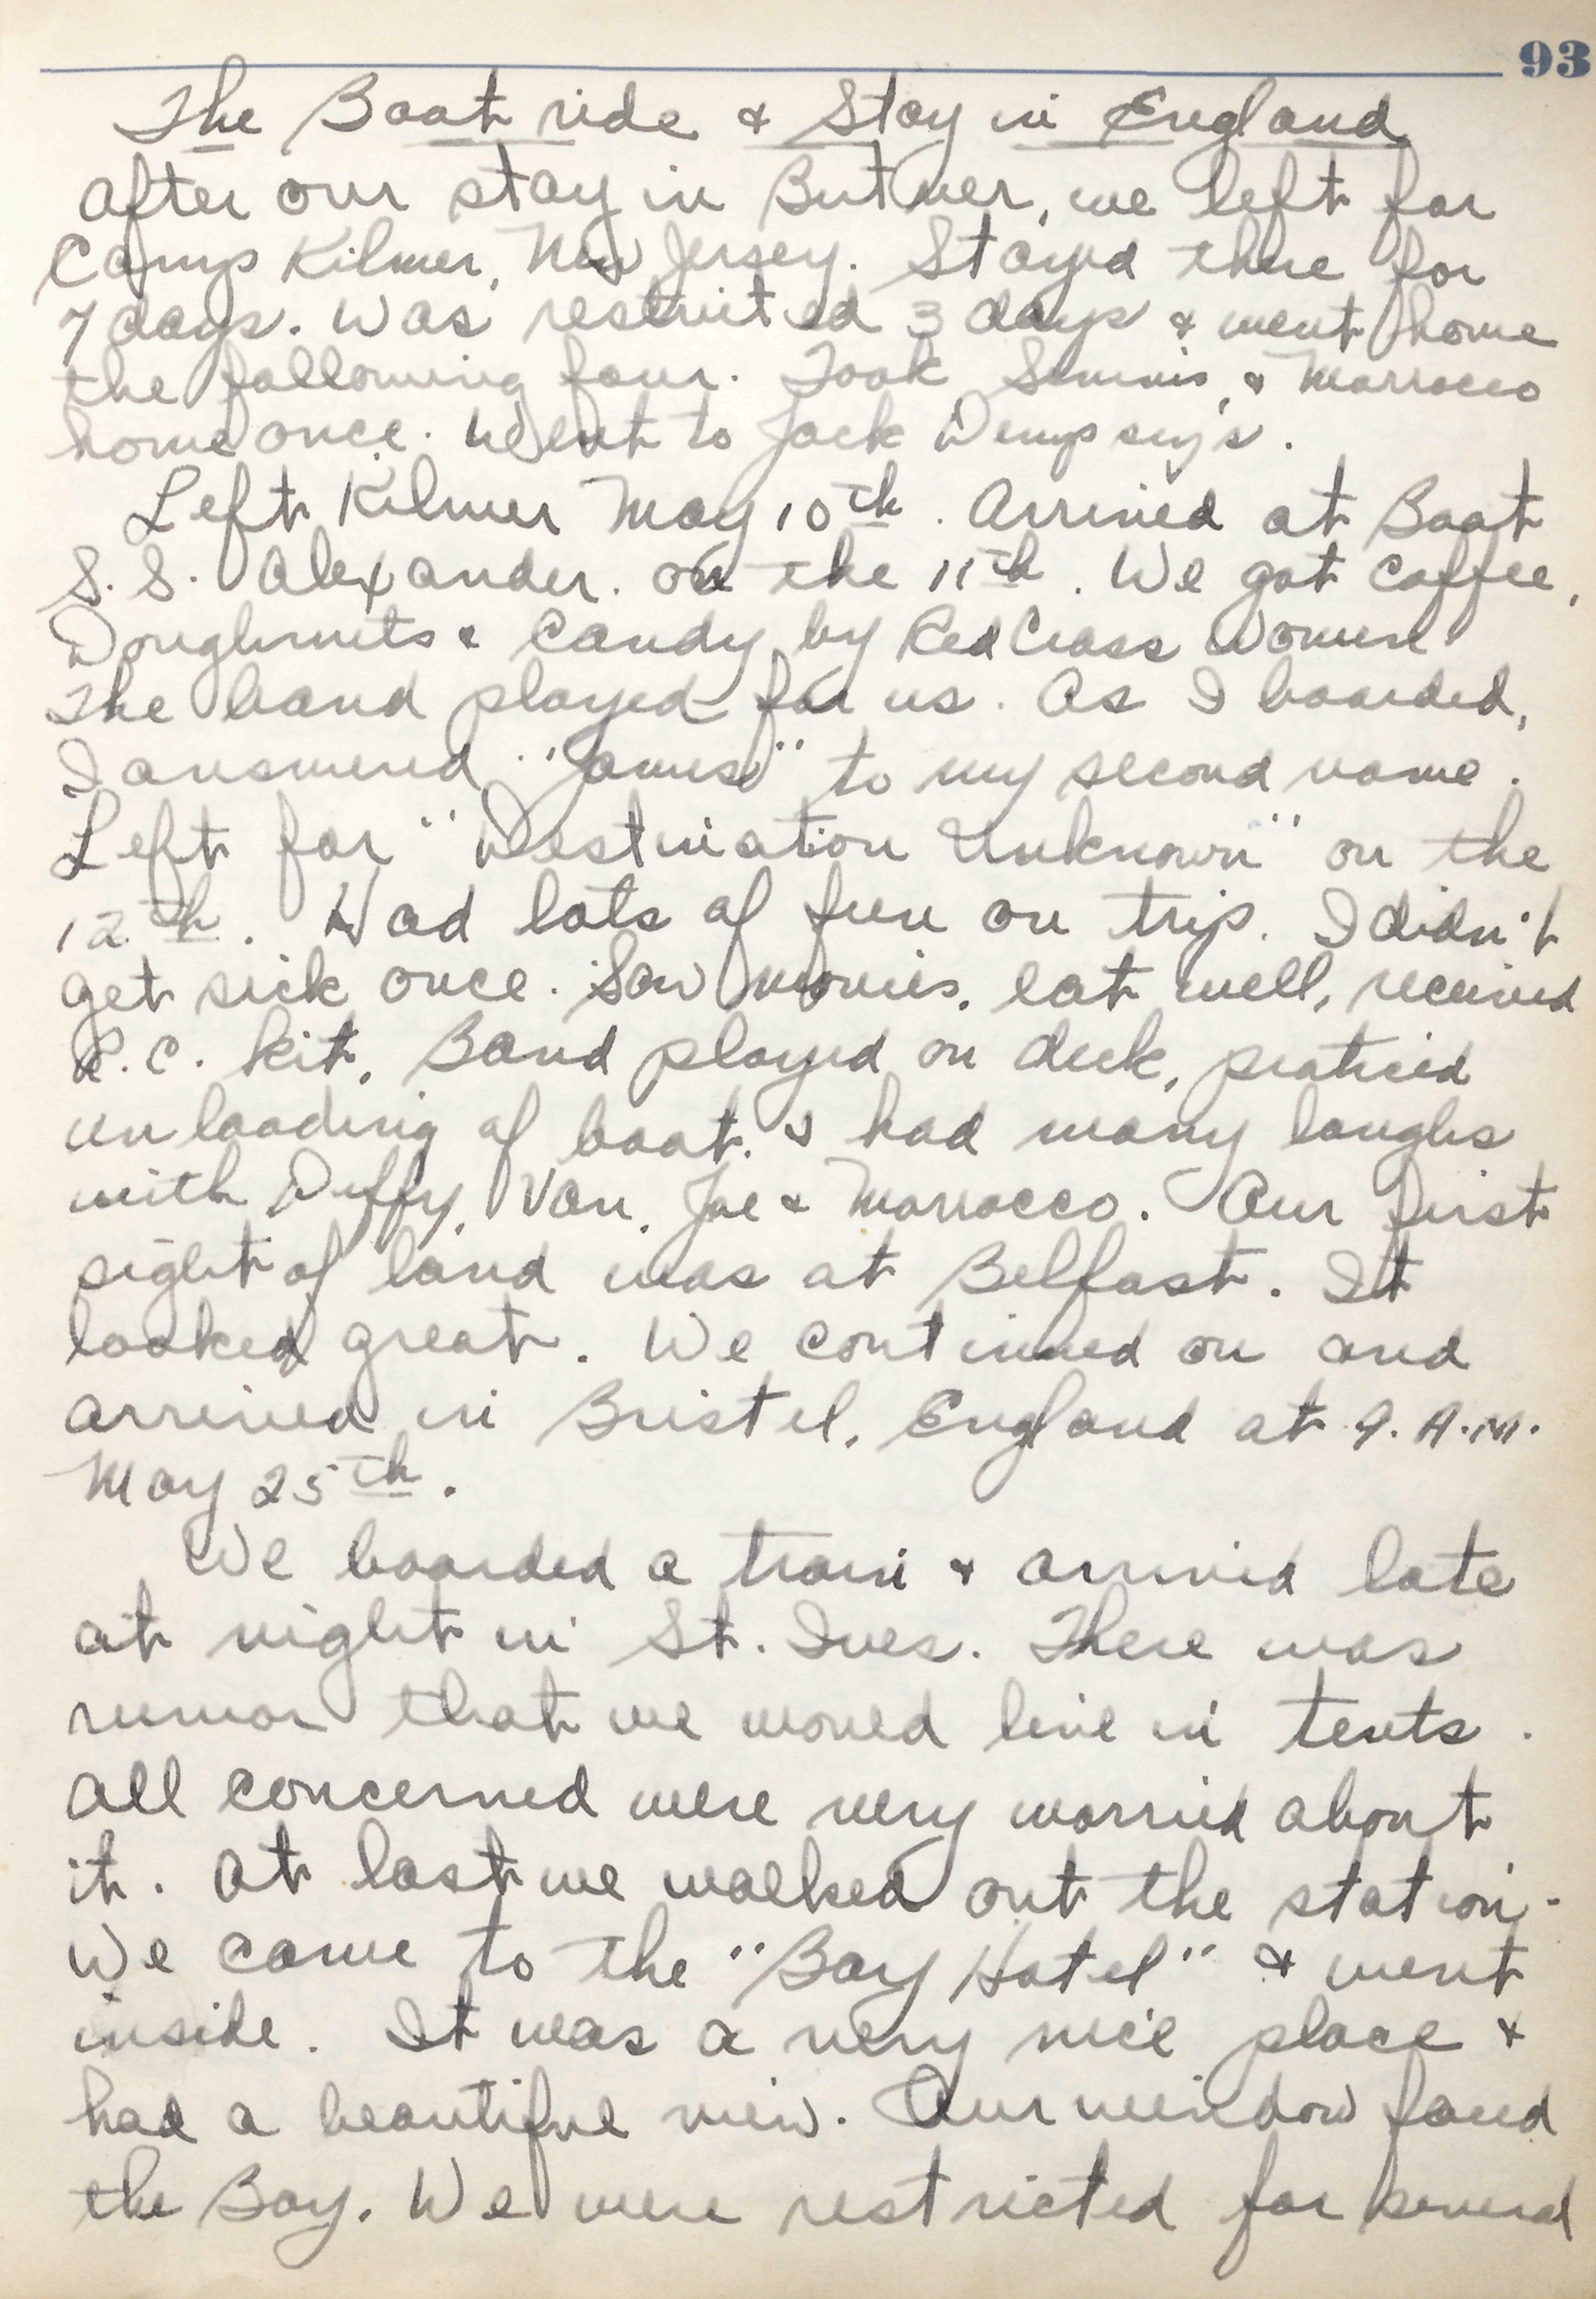 93
The Boat ride & Stay in England
After our stay in Butner, we left for
Camp Kilmer, New Jersey. Stayed there for
7 days. Was restricted 3 days & went home
the following four. Took & Marrocco
home once. Went to Jack Dempsey's.
Left Kilmer May 10th. Arrived at Boat
S.S. Alexander. on the 11th. We got coffee,
Doughnuts & Candy by Red Cross Women
The band played for us. As I boarded,
I answered "James" to my second name.
Left for "Destination Unknown" on the
12th. Had lots of fun on trip. I didn't
get sick once. Saw movies, eat well, received
R.C. kit, Band played on deck, praticed
unloading of boat, & had many laughs
with Duffy, Van, Joe & Marrocco. Our first
sight of land was at Belfast. It
looked great. We continued on and
arrived in Bristel, England at 9. A.M.
May 25th.
We boarded a train & arrived late
at night in St. Ives. There was
rumor that we would live in tents.
All concerned were very worried about
it. At last we walked out the station.
We came to the "Bay Hotel" & went
inside. It was a very nice place &
had a beautiful view. Our window faced
the Bay. We were restricted for several